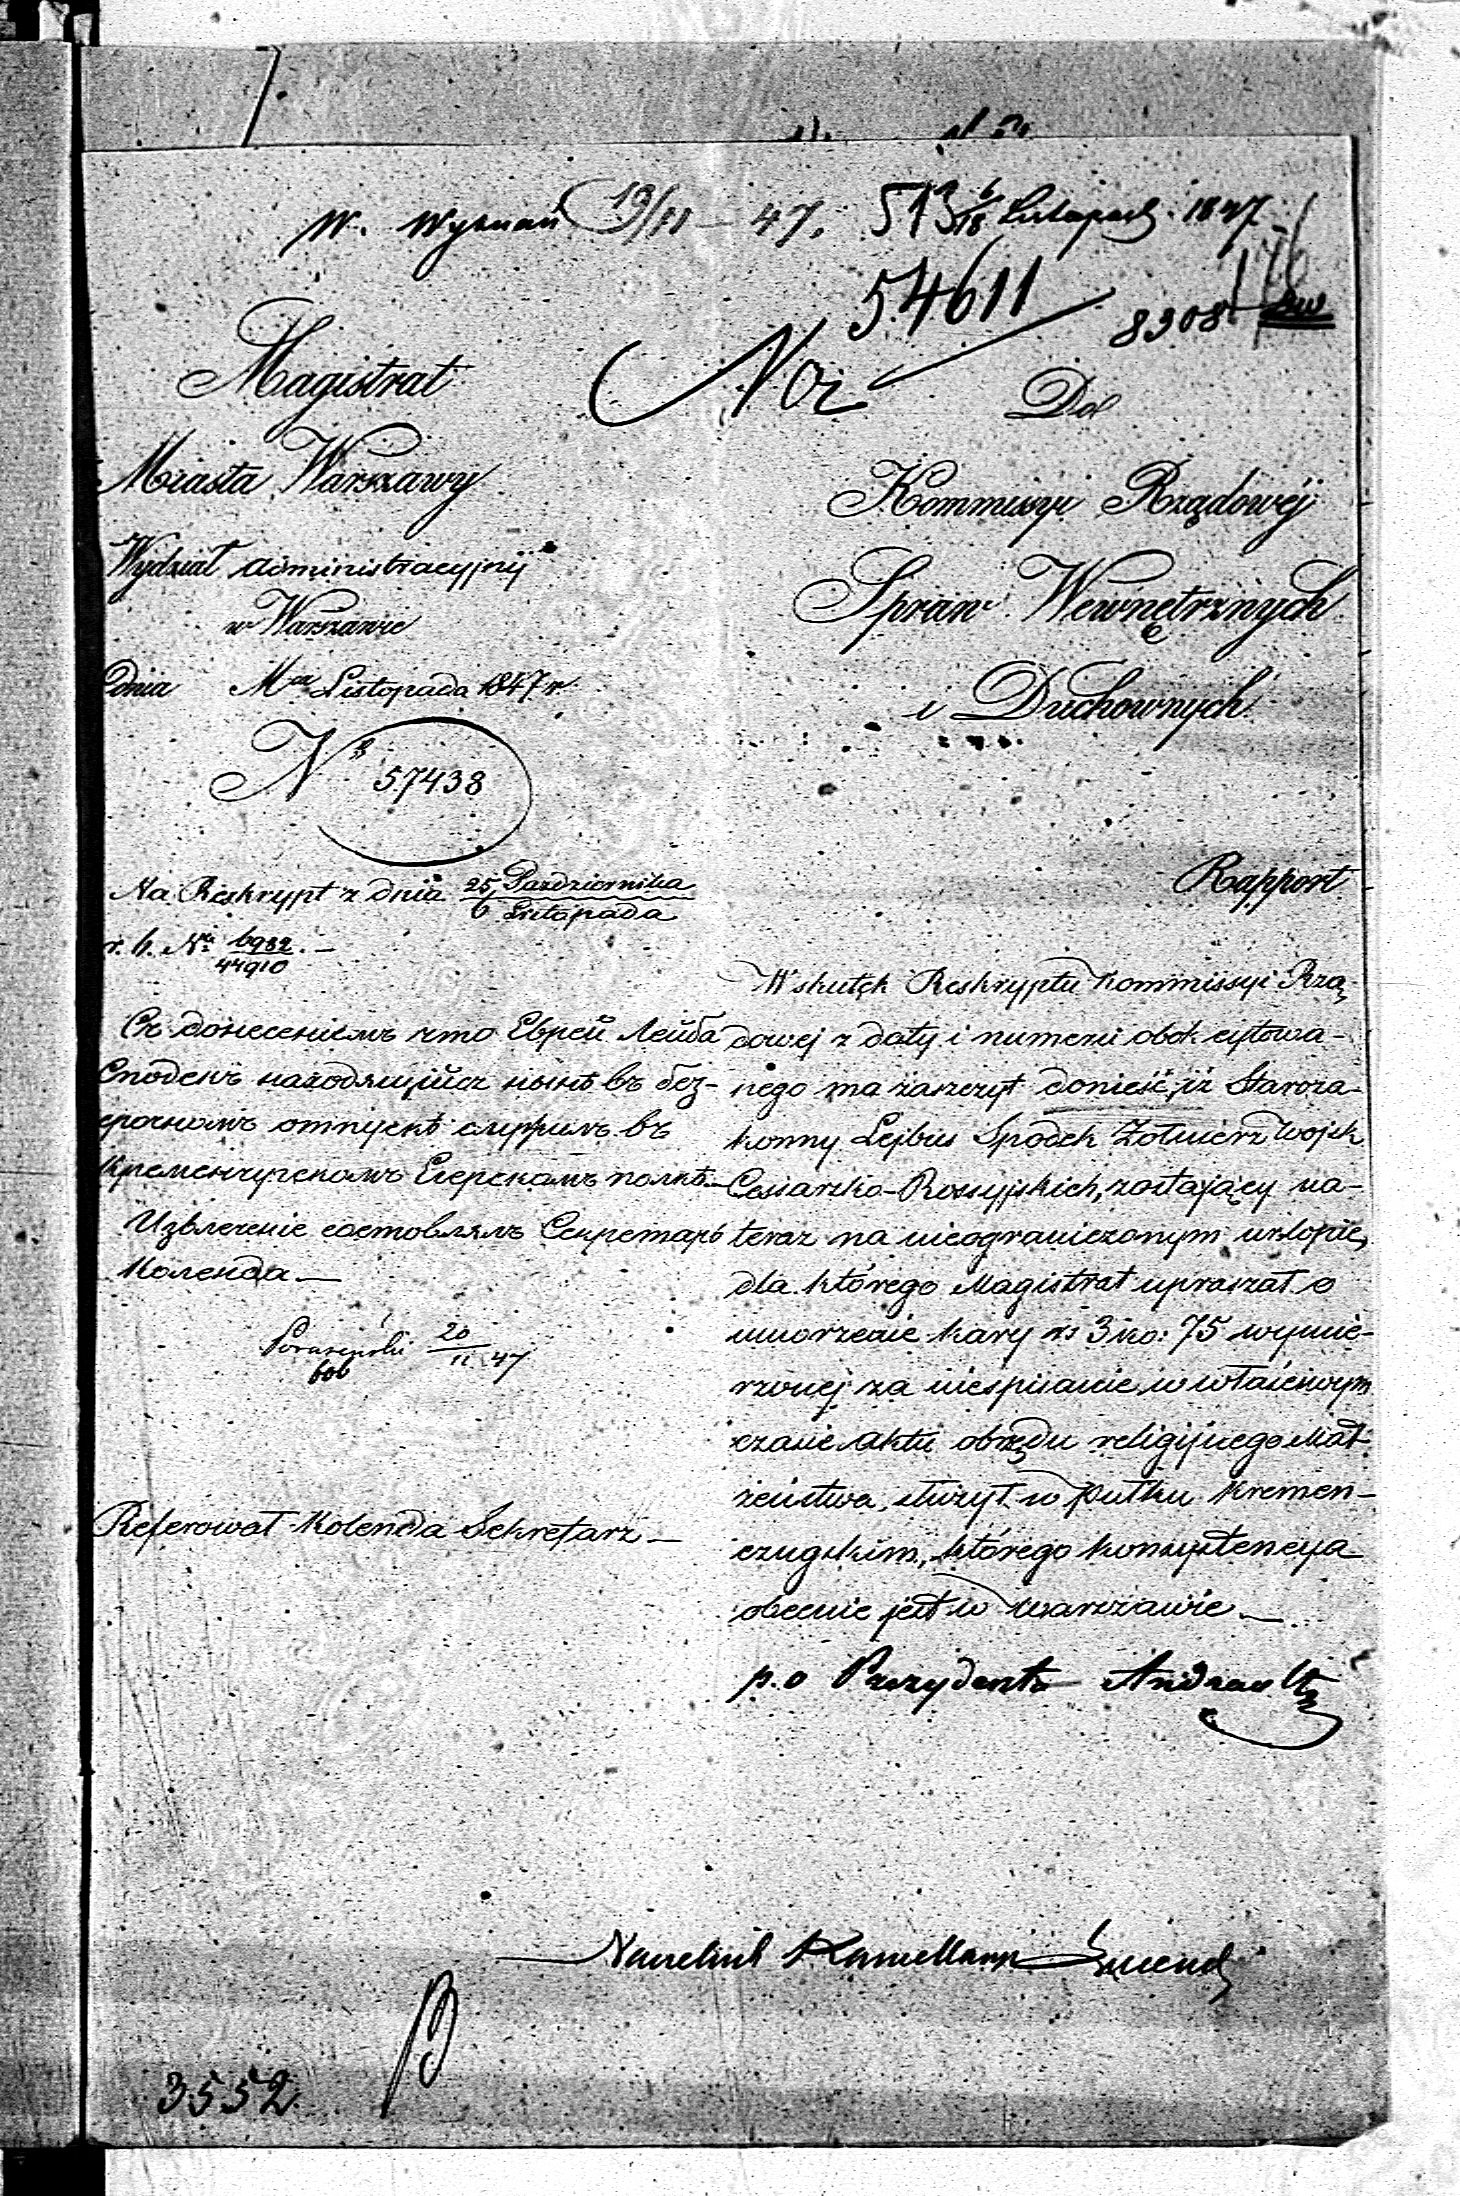 W. Wyznań 19/11 – 47. 513 6/18 Listopad. 1847.
54611
8308
Magistrat
Miasta Warszawy
Wydział Administracyjny
w Warszawie
dnia Mca Listopada 1847 r
No 57438
Na Reskrypt z dnia 25 Października
6 Listopada
r. b. No 6982
44910
Съ донесеніемъ что Еврей Лейба
Сподекъ находящійся нынѣ въ без-
срочномъ отпускѣ служилъ въ
Кременчугскомъ Егерскомъ полкѣ.—
Извлеченіе составлялъ Секретарь
Коленда.—
20
11 47
Referował Kolenda Sekretarz —
Do
Kommissyi Rządowéj
Spraw Wewnętrznych
i Duchownych
Rapport
W skutek Reskryptu Kommissyi Rzą-
dowej z daty i numeru obok cytowa-
nego ma zaszczyt donieść, iż Staroza-
konny Lejbus Spodek Żołnierz Wojsk
Cesarsko-Rossyjskich, zostający na-
teraz na nieograniczonym urlopie,
dla którego Magistrat upraszał o
umorzenie kary rs 3 ko: 75 wymie-
rzonej za niespisanie w właściwym
czasie Aktu obrzędu religijnego Mał-
żeństwa, służył w Pułku Kremen-
czugskim, którego konsystencya
obecnie jest w Warszawie.—
p.o Prezydenta Andrault
Naczelnik Kancellaryi
3552.